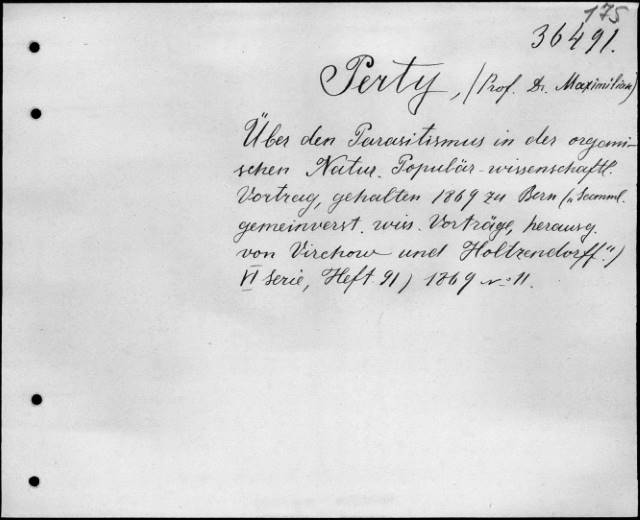 175
36491.
Perty, (Prof. Dr. Maximilian)
Über den Parasitismus in der organi-
schen Natur. Populär-wissenschaftl.
Vortrag, gehalten 1869 zu Bern („Samml.
gemeinverst. wiss. Vorträge, herausg.
von Virchow und Holtzendorff“.)
VI Serie, Heft 91) 1869 11.